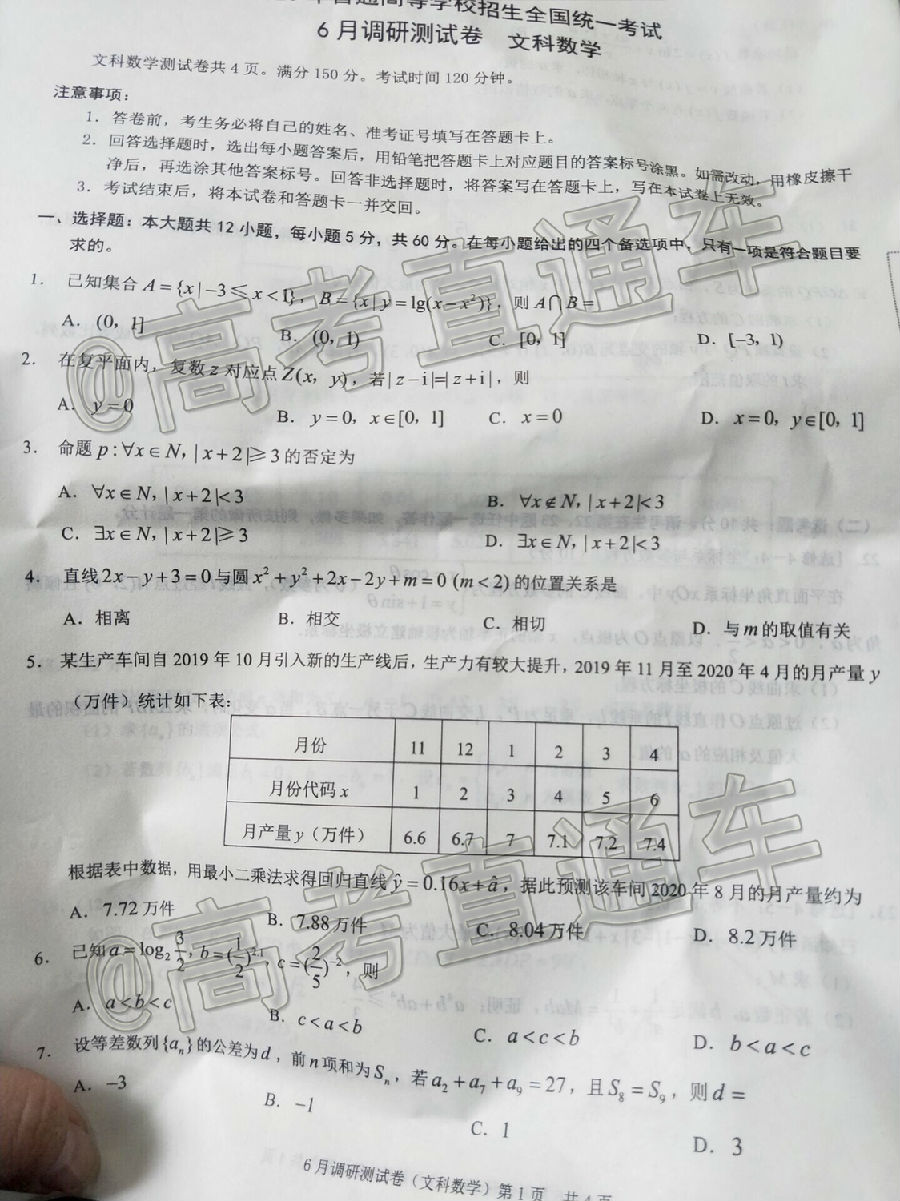 年普通高等学校招生全国统一考试
6月调研测试卷 文科数学
文科数学测试卷共4页。满分150分。考试时间120分钟。
注意事项:
1. 答卷前,考生务必将自己的姓名、准考证号填写在答题卡上。
2. 回答选择题时,选出每小题答案后,用铅笔把答题卡上对应题目的答案标号涂黑。如需改动,用橡皮擦干
净后,再选涂其他答案标号。回答非选择题时,将答案写在答题卡上,写在本试卷上无效。
3. 考试结束后,将本试卷和答题卡一并交回。
一、选择题:本大题共12小题,每小题5分,共60分。在每小题给出的四个备选项中,只有一项是符合题目要
求的。
1. 已知集合A={x|-3≤x<1},B={x|y=lg(x-x²)},则A∩B=
A. (0, 1] B. (0, 1) C. [0, 1] D. [-3, 1)
2. 在复平面内,复数z对应点Z(x, y),若|z-i|=|z+i|,则
A. y=0 B. y=0, x∈[0, 1] C. x=0 D. x=0, y∈[0, 1]
3. 命题p:∀x∈N,|x+2|≥3的否定为
A. ∀x∈N,|x+2|<3 B. ∀x∉N,|x+2|<3
C. ∃x∈N,|x+2|≥3 D. ∃x∈N,|x+2|<3
4. 直线2x-y+3=0与圆x²+y²+2x-2y+m=0 (m<2)的位置关系是
A. 相离 B. 相交 C. 相切 D. 与m的取值有关
5. 某生产车间自2019年10月引入新的生产线后,生产力有较大提升,2019年11月至2020年4月的月产量y
(万件)统计如下表:
月份 11 12 1 2 3 4
月份代码x 1 2 3 4 5 6
月产量y(万件) 6.6 6.7 7 7.1 7.2 7.4
根据表中数据,用最小二乘法求得回归直线ŷ=0.16x+â,据此预测该车间2020年8月的月产量约为
A. 7.72万件 B. 7.88万件 C. 8.04万件 D. 8.2万件
6. 已知a=log₂ 3/2, b=(1/2)^2.1, c=(2/5)^-2,则
A. a<b<c B. c<a<b C. a<c<b D. b<a<c
7. 设等差数列{aₙ}的公差为d,前n项和为Sₙ,若a₂+a₇+a₉=27,且S₈=S₉,则d=
A. -3 B. -1 C. 1 D. 3
6月调研测试卷(文科数学)第1页 共4页
@高考直通车
@高考直通车